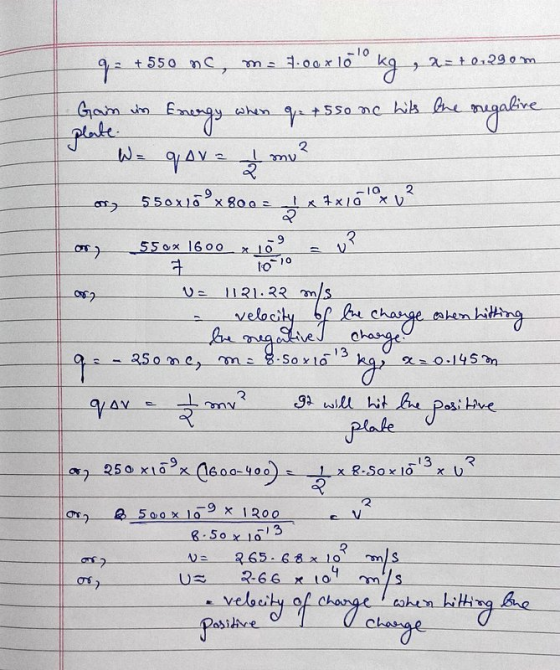 q = +550 nC, m = 7.00×10⁻¹⁰ kg, x = +0.290 m
Gain in Energy when q = +550 nc hits the negative
plate.
W = qΔV = 1/2 mv²
or, 550×10⁻⁹×800 = 1/2 × 7×10⁻¹⁰× v²
or, 550×1600/7 × 10⁻⁹/10⁻¹⁰ = v²
or, v = 1121.22 m/s
= velocity of the charge when hitting
the negative charge.
q = - 250 nc, m = 8.50×10⁻¹³ kg, x = 0.145 m
qΔV = 1/2 mv² It will hit the positive
plate
or, 250 ×10⁻⁹× (1600-400) = 1/2 × 8.50×10⁻¹³ × v²
or, 500×10⁻⁹ × 1200 / 8.50×10⁻¹³ = v²
or, v = 265.68 × 10² m/s
or, v ≈ 2.66 × 10⁴ m/s
= velocity of charge when hitting the
positive charge